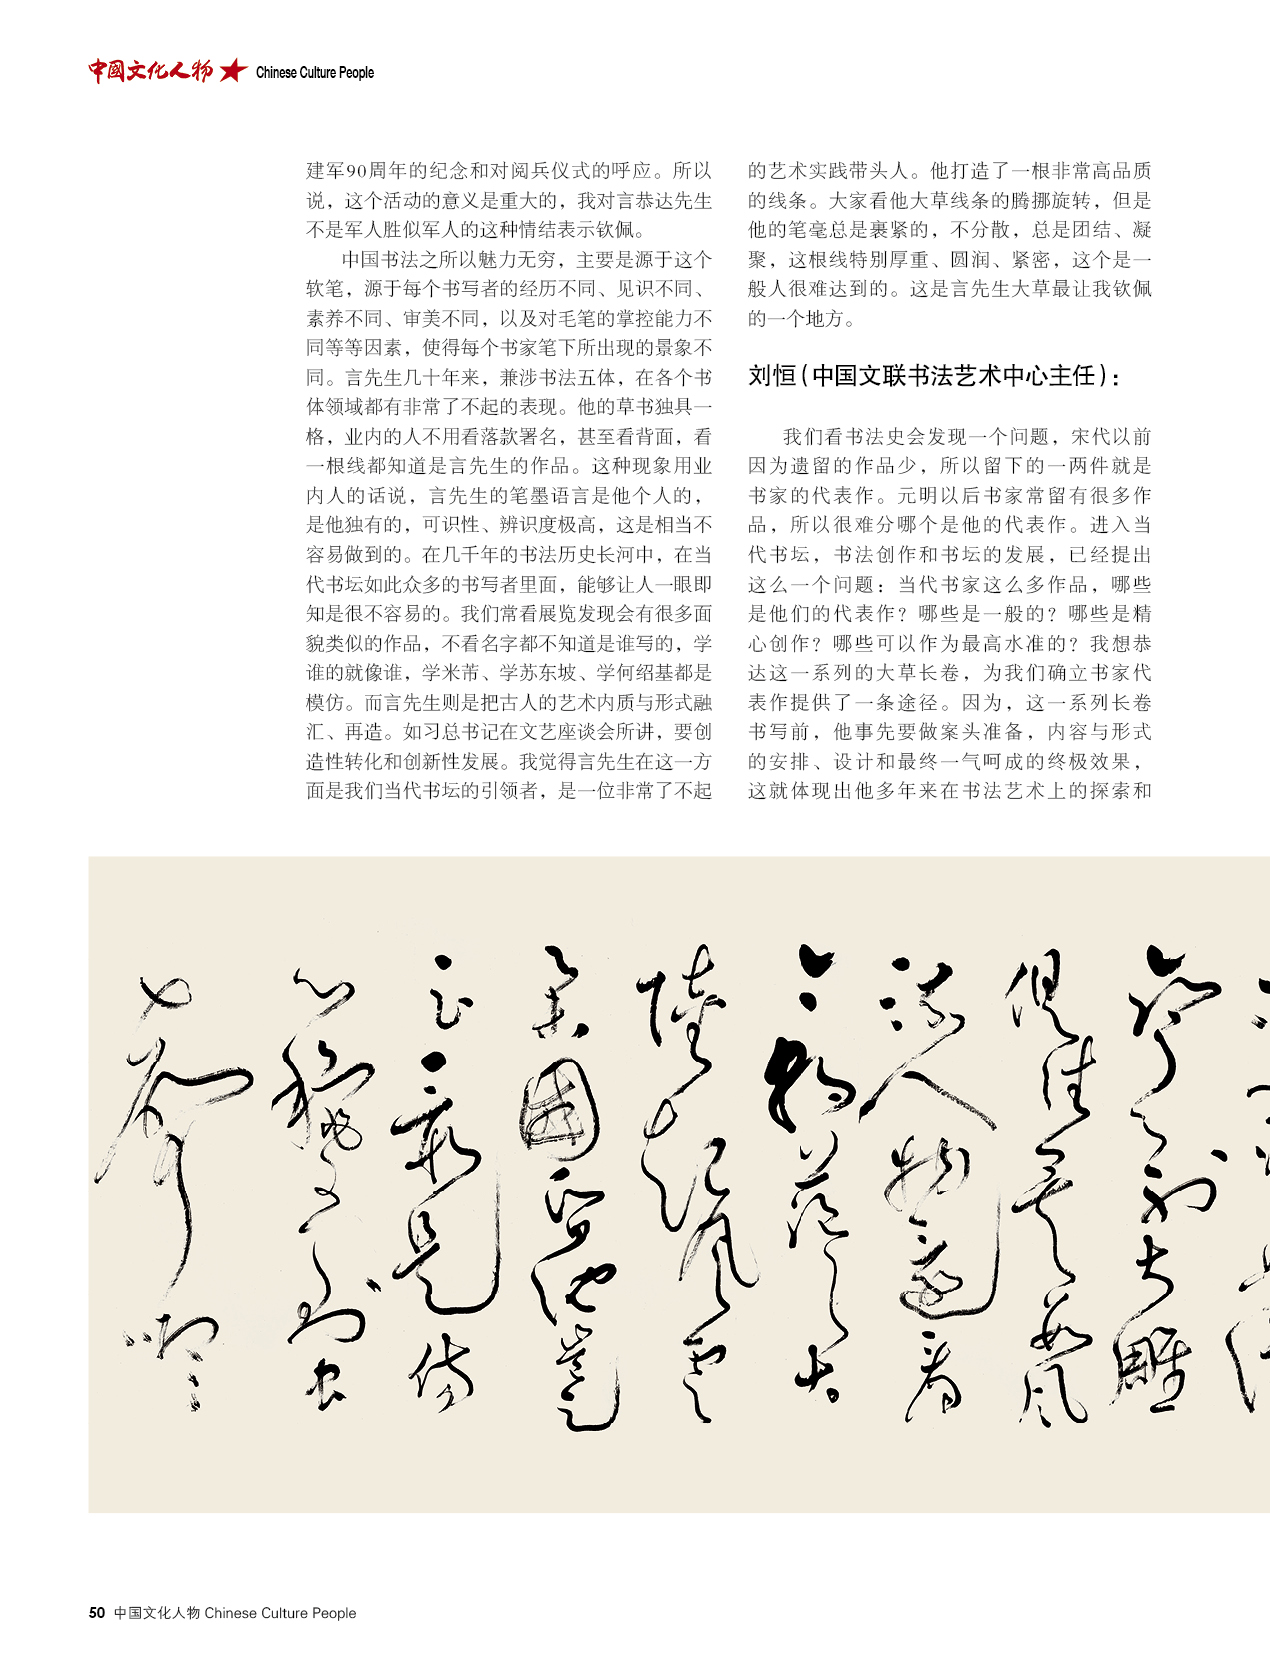 中國文化人物 Chinese Culture People
建军90周年的纪念和对阅兵仪式的呼应。所以
说，这个活动的意义是重大的，我对言恭达先生
不是军人胜似军人的这种情结表示钦佩。
中国书法之所以魅力无穷，主要是源于这个
软笔，源于每个书写者的经历不同、见识不同、
素养不同、审美不同，以及对毛笔的掌控能力不
同等等因素，使得每个书家笔下所出现的景象不
同。言先生几十年来，兼涉书法五体，在各个书
体领域都有非常了不起的表现。他的草书独具一
格，业内的人不用看落款署名，甚至看背面，看
一根线都知道是言先生的作品。这种现象用业
内人的话说，言先生的笔墨语言是他个人的，
是他独有的，可识性、辨识度极高，这是相当不
容易做到的。在几千年的书法历史长河中，在当
代书坛如此众多的书写者里面，能够让人一眼即
知是很不容易的。我们常看展览发现会有很多面
貌类似的作品，不看名字都不知道是谁写的，学
谁的就像谁，学米芾、学苏东坡、学何绍基都是
模仿。而言先生则是把古人的艺术内质与形式融
汇、再造。如习总书记在文艺座谈会所讲，要创
造性转化和创新性发展。我觉得言先生在这一方
面是我们当代书坛的引领者，是一位非常了不起
的艺术实践带头人。他打造了一根非常高品质
的线条。大家看他大草线条的腾挪旋转，但是
他的笔毫总是裹紧的，不分散，总是团结、凝
聚，这根线特别厚重、圆润、紧密，这个是一
般人很难达到的。这是言先生大草最让我钦佩
的一个地方。
刘恒(中国文联书法艺术中心主任)：
我们看书法史会发现一个问题，宋代以前
因为遗留的作品少，所以留下的一两件就是
书家的代表作。元明以后书家常留有很多作
品，所以很难分哪个是他的代表作。进入当
代书坛，书法创作和书坛的发展，已经提出
这么一个问题：当代书家这么多作品，哪些
是他们的代表作？哪些是一般的？哪些是精
心创作？哪些可以作为最高水准的？我想恭
达这一系列的大草长卷，为我们确立书家代
表作提供了一条途径。因为，这一系列长卷
书写前，他事先要做案头准备，内容与形式
的安排、设计和最终一气呵成的终极效果，
这就体现出他多年来在书法艺术上的探索和
50 中国文化人物 Chinese Culture People